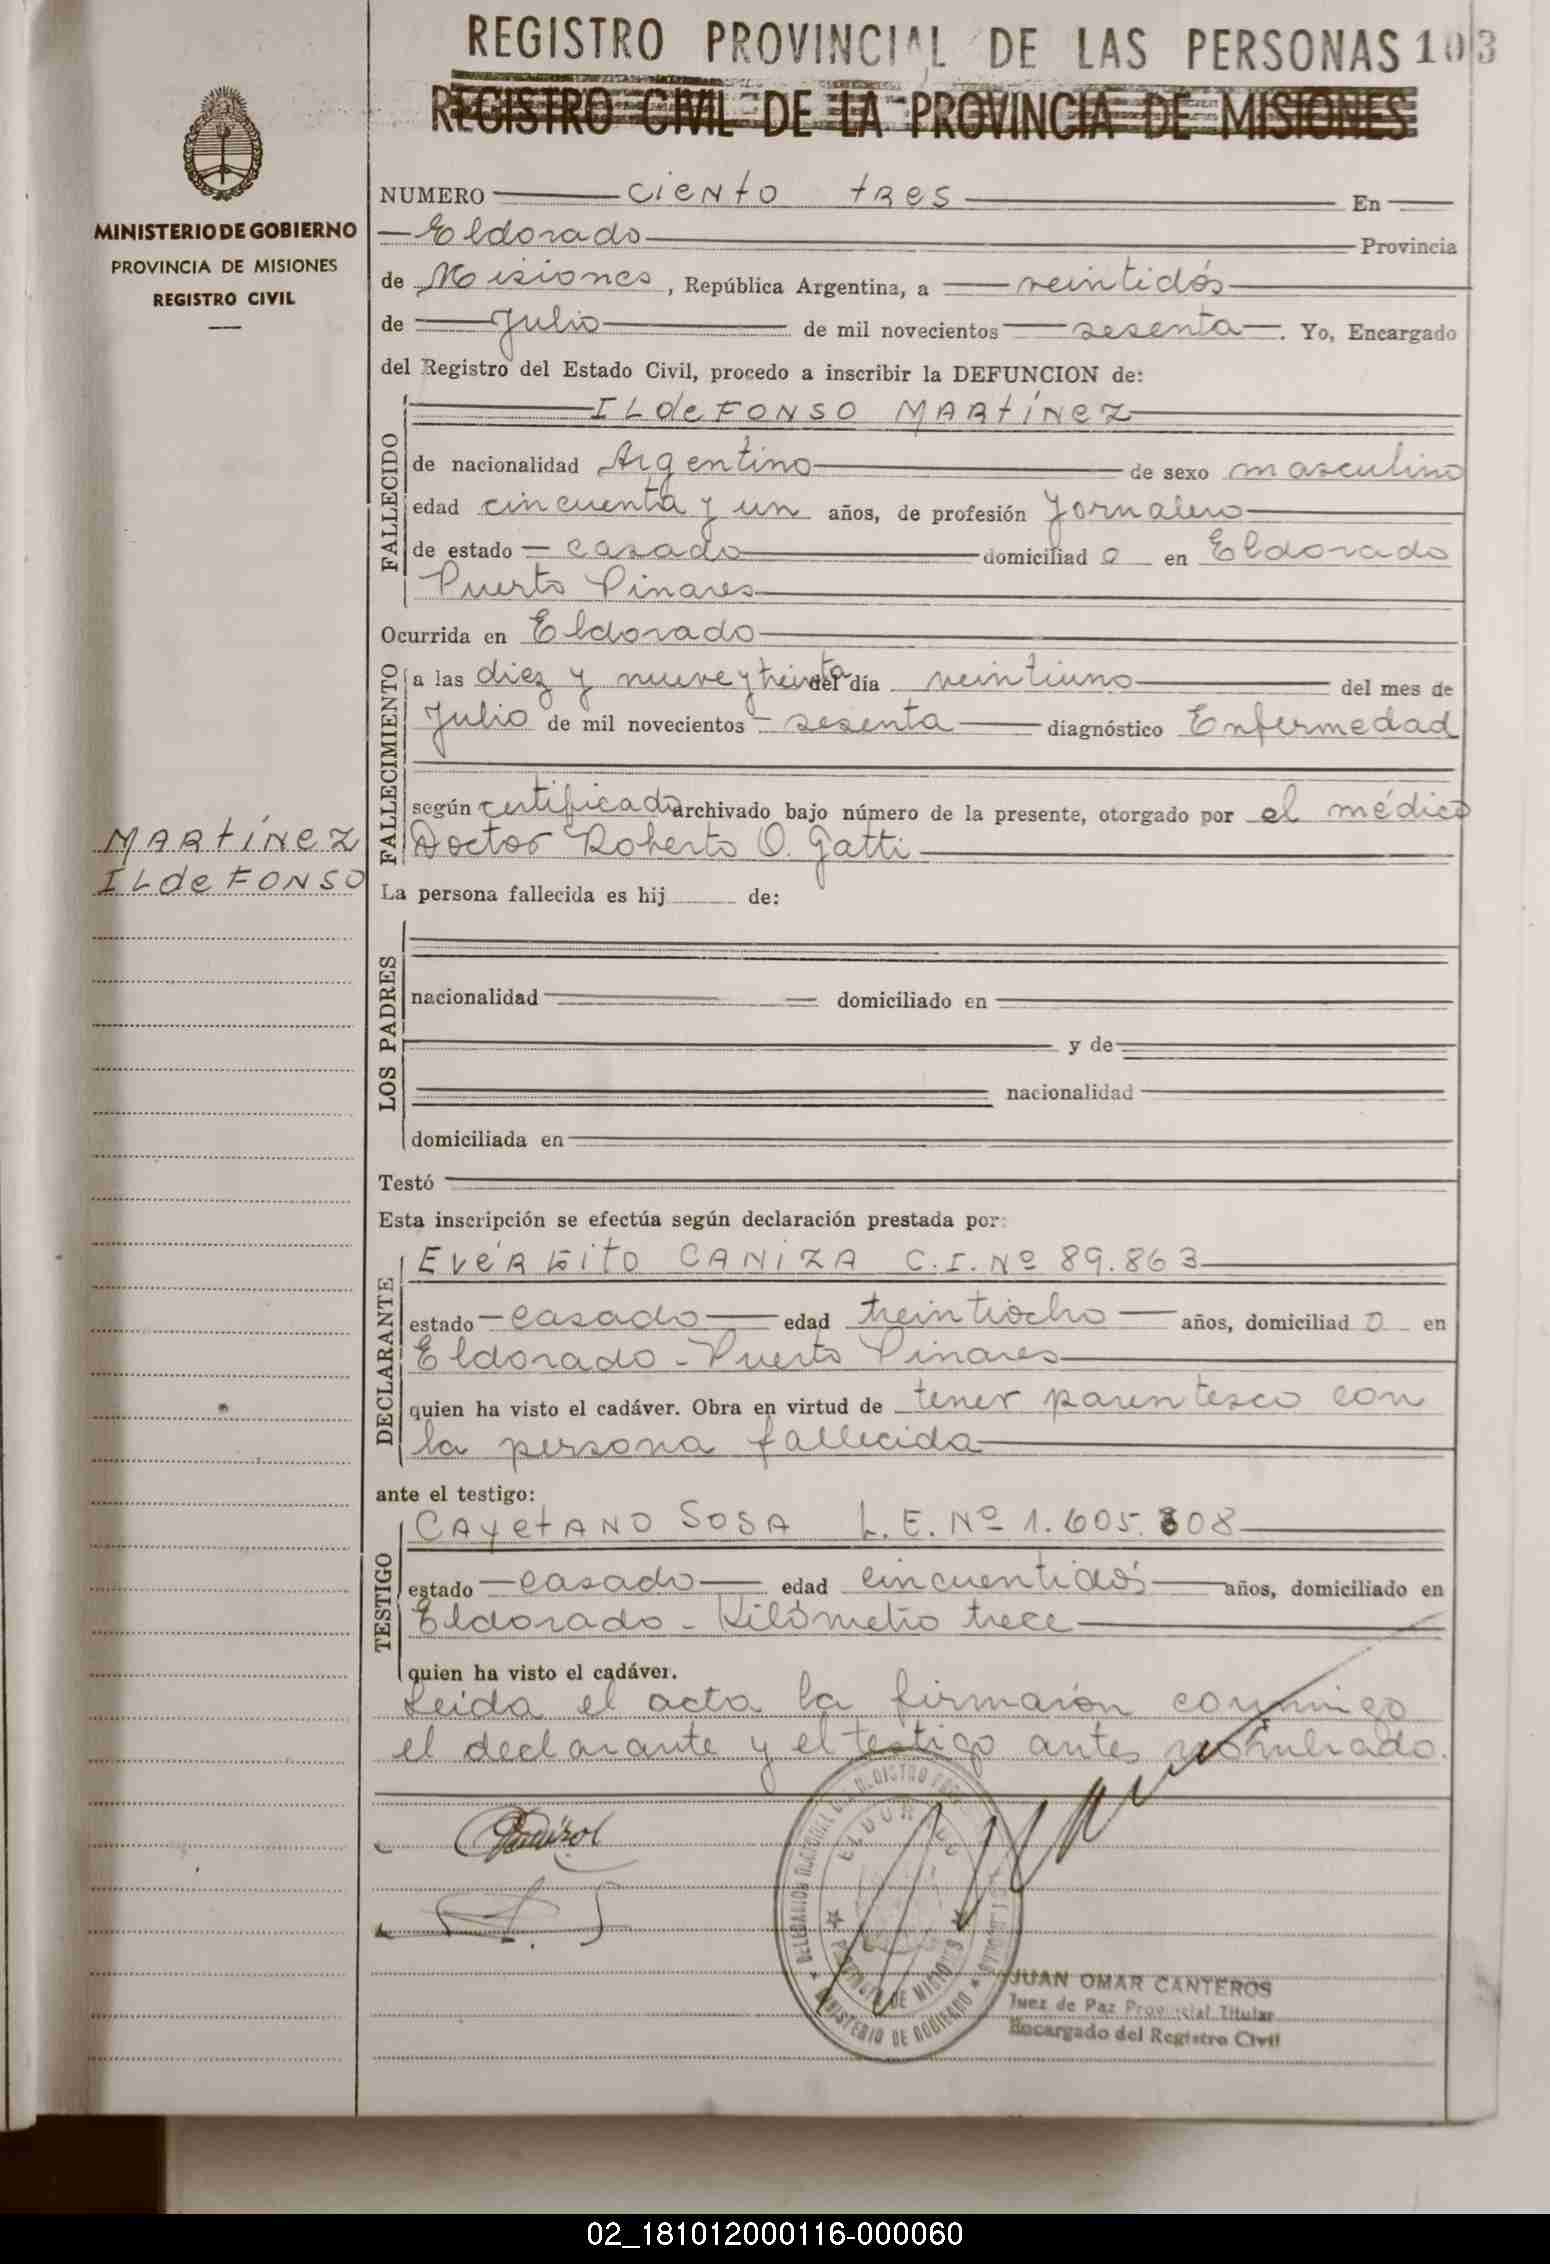 REGISTRO PROVINCIAL DE LAS PERSONAS 103
REGISTRO CIVIL DE LA PROVINCIA DE MISIONES
MINISTERIO DE GOBIERNO
PROVINCIA DE MISIONES
REGISTRO CIVIL
NUMERO ciento tres En
Eldorado Provincia
de Misiones, República Argentina, a veintidós
de Julio de mil novecientos sesenta. Yo, Encargado
del Registro del Estado Civil, procedo a inscribir la DEFUNCION de:
FALLECIDO
ILdeFONSO MARtíNeZ
de nacionalidad Argentino de sexo masculino
edad cincuenta y un años, de profesión Jornalero
de estado casado domiciliad o en Eldorado
Puerto Pinares
Ocurrida en Eldorado
FALLECIMIENTO
a las diez y nueve y treinta del día veintiuno del mes de
Julio de mil novecientos sesenta diagnóstico Enfermedad
según certificado archivado bajo número de la presente, otorgado por el médico
Doctor Roberto O. Gatti
MARtíNeZ
ILdeFONSO
La persona fallecida es hij de:
LOS PADRES
nacionalidad domiciliado en
y de
nacionalidad
domiciliada en
Testó
Esta inscripción se efectúa según declaración prestada por:
DECLARANTE
CANiZA C.I. Nº 89.863
estado casado edad treintiocho años, domiciliad o en
Eldorado - Puerto Pinares
quien ha visto el cadáver. Obra en virtud de tener parentesco con
la persona fallecida
ante el testigo:
TESTIGO
CAyetANO SOSA L.E. Nº 1.605.808
estado casado edad cincuentidós años, domiciliado en
Eldorado - Kilómetro trece
quien ha visto el cadáver.
Leida el acta la firmaron conmigo
el declarante y el testigo antes nombrado.
ELDORADO
MINISTERIO DE GOBIERNO
JUAN OMAR CANTEROS
Juez de Paz Provincial Titular
Encargado del Registro Civil
02_181012000116-000060